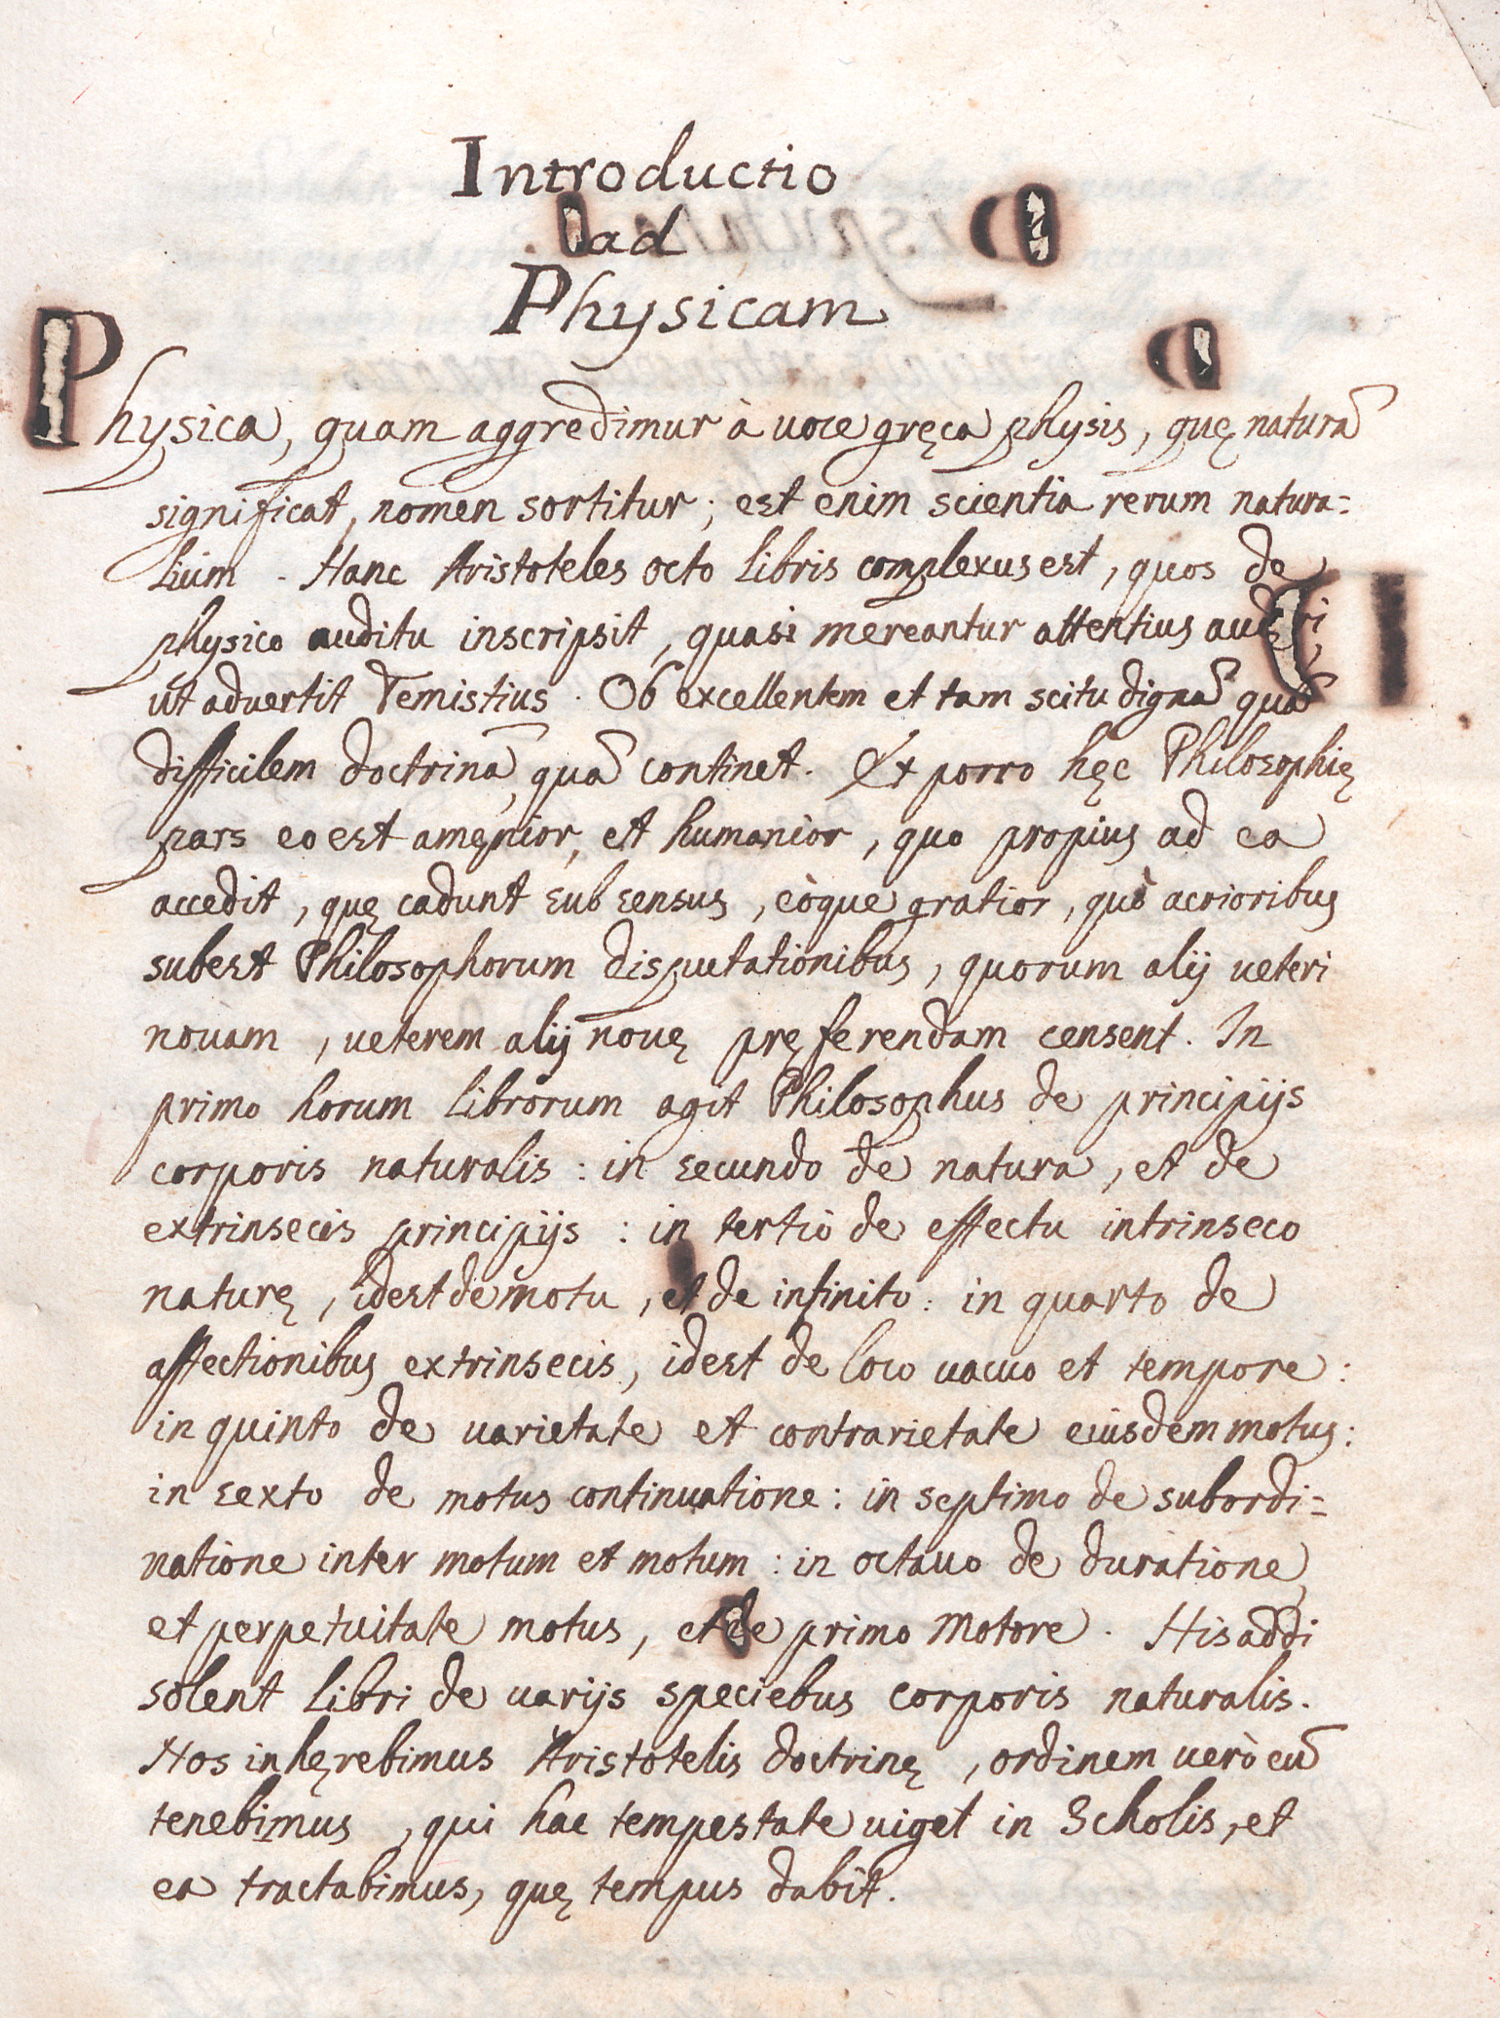 Introductio
ad
Physicam
Physica, quam aggredimur à uoce gręca physis, quę naturã
significat, nomen sortitur; est enim scientia rerum natura=
lium. Hanc Aristoteles octo libris complexus est, quos de
physico auditu inscripsit, quasi mereantur attentius audiri
ut aduertit Temistius. Ob excellentem et tam scitu dignã quã
difficilem doctrinã, quã continet. Et porro hęc Philosophię
pars eo est amęnior, et humanior, quo propius ad ea
accedit, quę cadunt sub sensus, eòque gratior, quò acrioribus
subest Philosophorum disputationibus, quorum alij ueteri
nouam, ueterem alij nouę pręferendam censent. In
primo horum librorum agit Philosophus de principijs
corporis naturalis: in secundo de natura, et de
extrinsecis principijs: in tertio de effectu intrinseco
naturę, idest de motu, et de infinito: in quarto de
affectionibus extrinsecis, idest de loco uacuo et tempore:
in quinto de uarietate et contrarietate eiusdem motus:
in sexto de motus continuatione: in septimo de subordi=
natione inter motum et motum: in octauo de duratione,
et perpetuitate motus, et de primo Motore. His addi
solent libri de uarijs speciebus corporis naturalis.
Nos inhęrebimus Aristotelis doctrinę, ordinem uerò eũ
tenebimus, qui hac tempestate uiget in Scholis, et
ea tractabimus, quę tempus dabit.